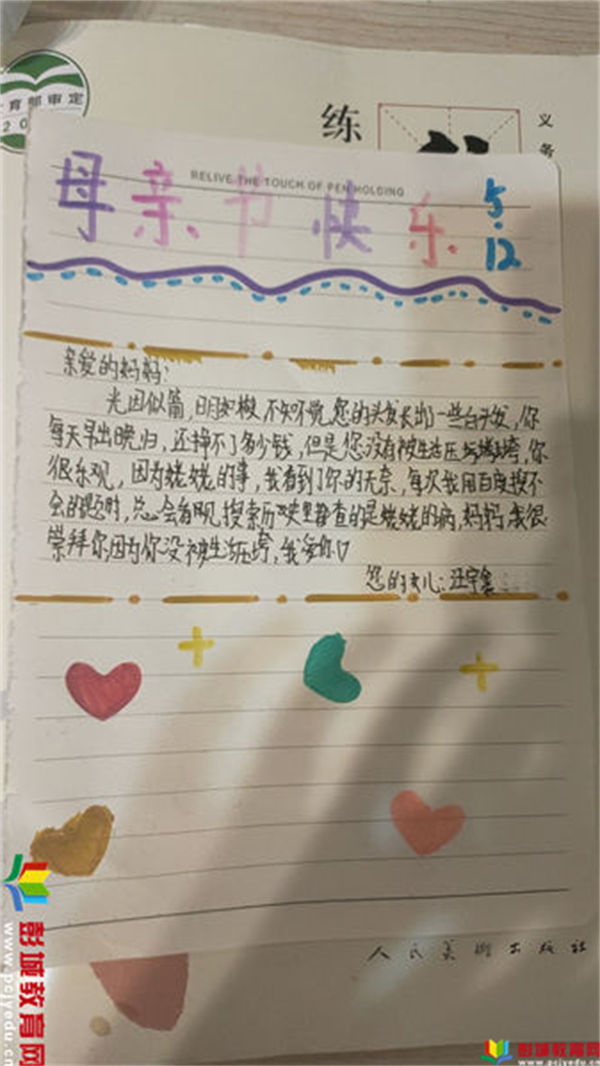 育部审定
20
练
义
务
RELIVE THE TOUCH OF PEN HOLDING
母亲节快乐
5.12
亲爱的妈妈:
光因似箭,日月如梭,不知不觉,您的头发长出了一些白头发,你
每天早出晚归,还挣不了多少钱,但是您没有被生活压垮,你
很乐观,因为姥姥的事,我看到了你的无奈,每次我用百度搜不
会的题时,总会看见搜索历史里都查的是姥姥的病,妈妈,我很
崇拜你因为你没被生活压垮,我爱你♡
您的女儿:汪宇
人民美术出版社
彭城教育网
www.pcjyedu.cn
彭城教育网
www.pcjyedu.cn